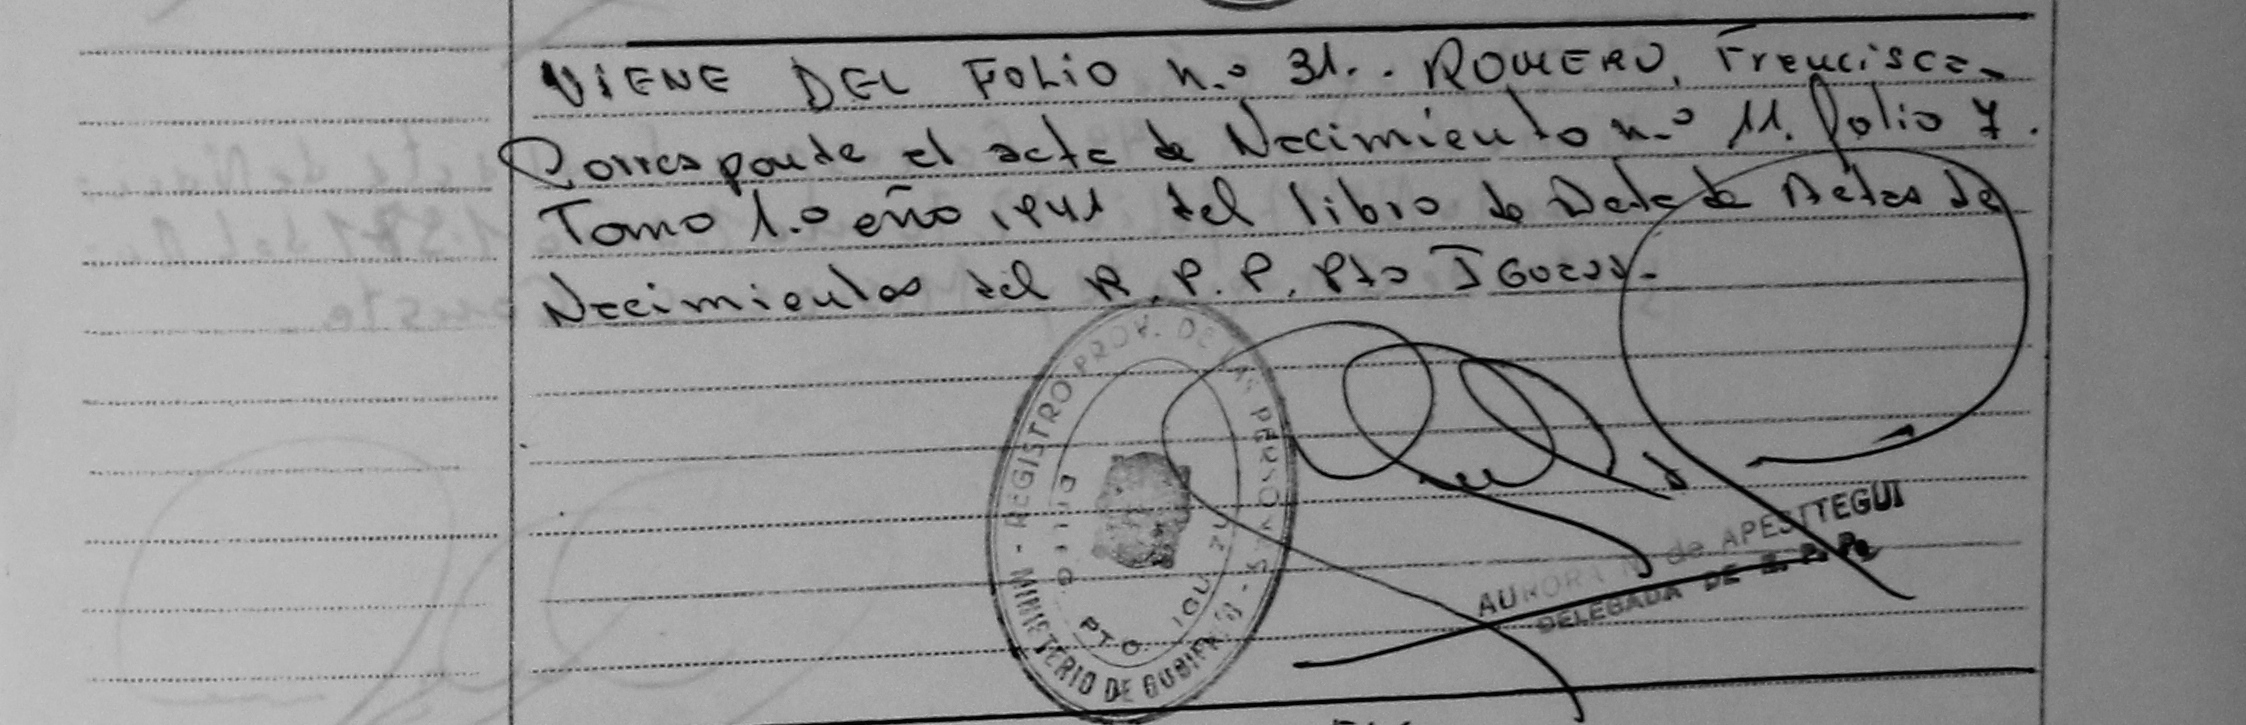 VIENE DEL FOLIO n.º 31.. ROMERO, Francisca.
Corresponde al acta de Nacimiento n.º 11. folio 7.
Tomo 1.º año 1941 del libro de Acta de Actas de
Nacimientos del R. P. P. Pto IGUAZÚ.-
REGISTRO PROV. DE LAS PERSONAS - MINISTERIO DE GOBIERNO -
PTO. IGUAZU
AURORA N de APESTTEGUI
DELEGADA DE R. P. P.